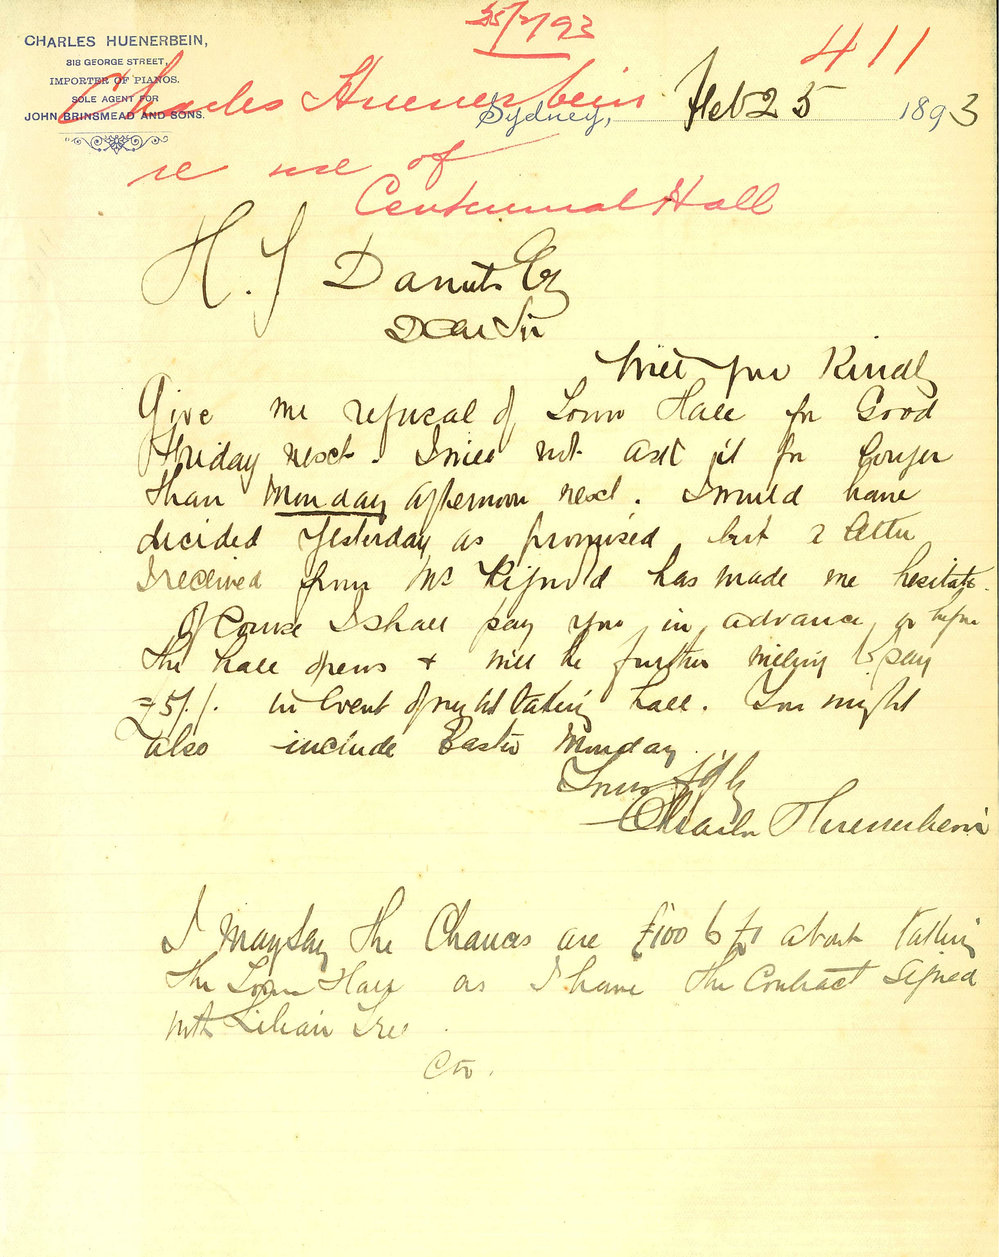 25/2/93
411
CHARLES HUENERBEIN,
818 GEORGE STREET,
IMPORTER OF PIANOS.
SOLE AGENT FOR
JOHN BRINSMEAD AND SONS.
Charles Huenerbein
Sydney, Feb 25 1893
re use of
Centennial Hall
H. J Daniels Esq
Dear Sir
Will you Kindly
Give me refusal of Town Hall for Good
Friday next. I will not ask it for longer
than Monday afternoon next. I would have
decided yesterday as promised but a letter
I received from Mr has made me hesitate.
Of Course I shall pay you in advance, or before
the hall opens & will be further willing to pay
£5/./. in Event of my not taking hall. You might
also include Easter Monday
Yours
Charles Huenerbein
I may say the Chances are £100 to £1 about taking
the Town Hall as I have the Contract Signed
with Lilian Tree